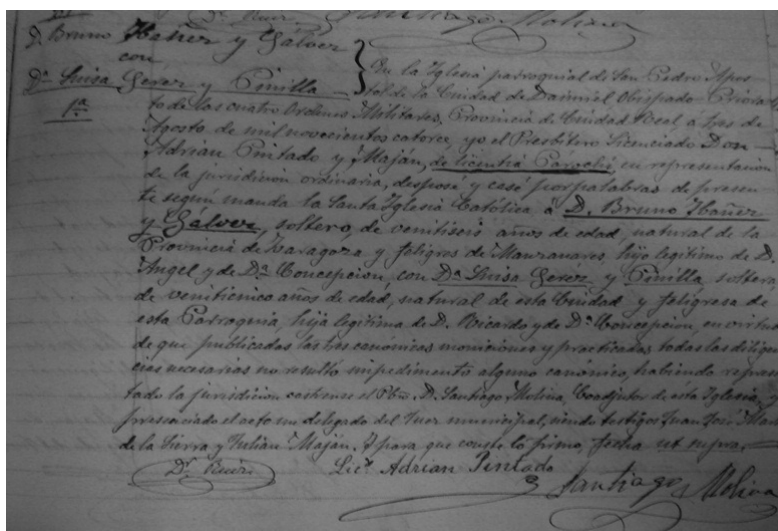 Santiago Molina
D. Bruno Ibañez y Gálvez
con
Dª Luisa Gerez y Pinilla
1ª
En la Iglesia parroquial de San Pedro Apos
tol de la Ciudad de Daimiel Obispado Priora
to de las cuatro Ordenes Militares, Provincia de Ciudad Real, á tres de
Agosto de mil novecientos catorce, yo el Presbítero Licenciado Don
Adrian Pintado y Maján, de licentia Parochi, en representacion
de la jurisdicion ordinaria, desposé y casé por palabras de presen
te segun manda la Santa Iglesia Católica á D. Bruno Ibañez
y Gálvez, soltero, de veintiseis años de edad, natural de la
Provincia de Zaragoza y feligres de Manzanares, hijo legítimo de D.
Angel y de Dª Concepcion, con Dª Luisa Gerez y Pinilla, soltera,
de veinticinco años de edad, natural de esta Ciudad y feligresa de
esta Parroquia, hija legítima de D. Ricardo y de Dª Concepcion, en virtud
de que publicadas las tres canónicas moniciones y practicadas todas las diligen
cias necesarias no resultó impedimento alguno canónico, habiendo represen
tado la jurisdicion castrense el Pbro. D. Santiago Molina, Coadjutor de esta Iglesia, y
presenciado el acto un delegado del Juez municipal, siendo testigos Juan José
de la Sierra y Julián Maján. Y para que conste lo firmo, fecha ut supra.
Licdo Adrian Pintado
Santiago Molina